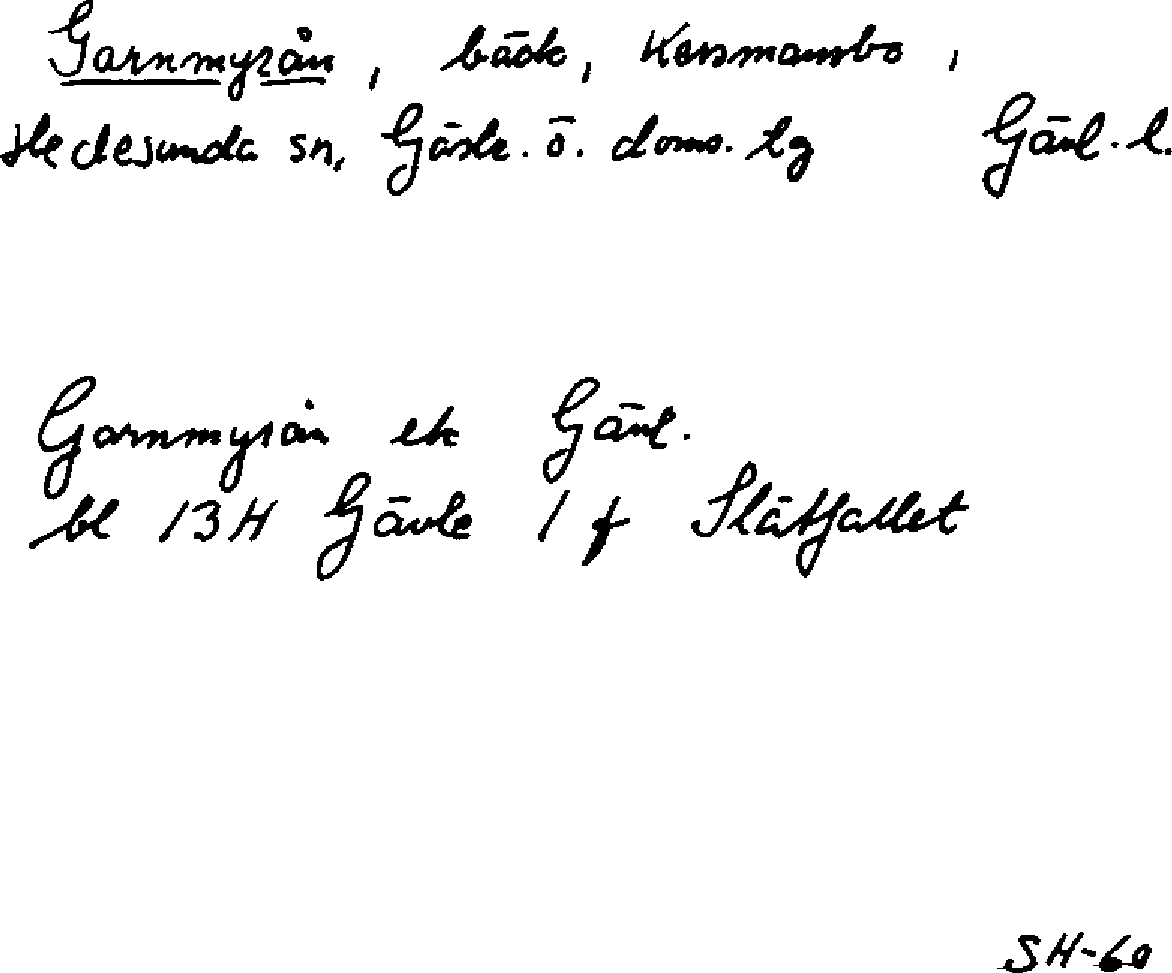 Garnmyrån, bäck, Kersmansbo,
Hedesunda sn, Gästr. ö. doms. lg Gävl. l.
Garnmyrån ek Gävl.
bl 13H Gävle 1 f Slätfallet
SH-60